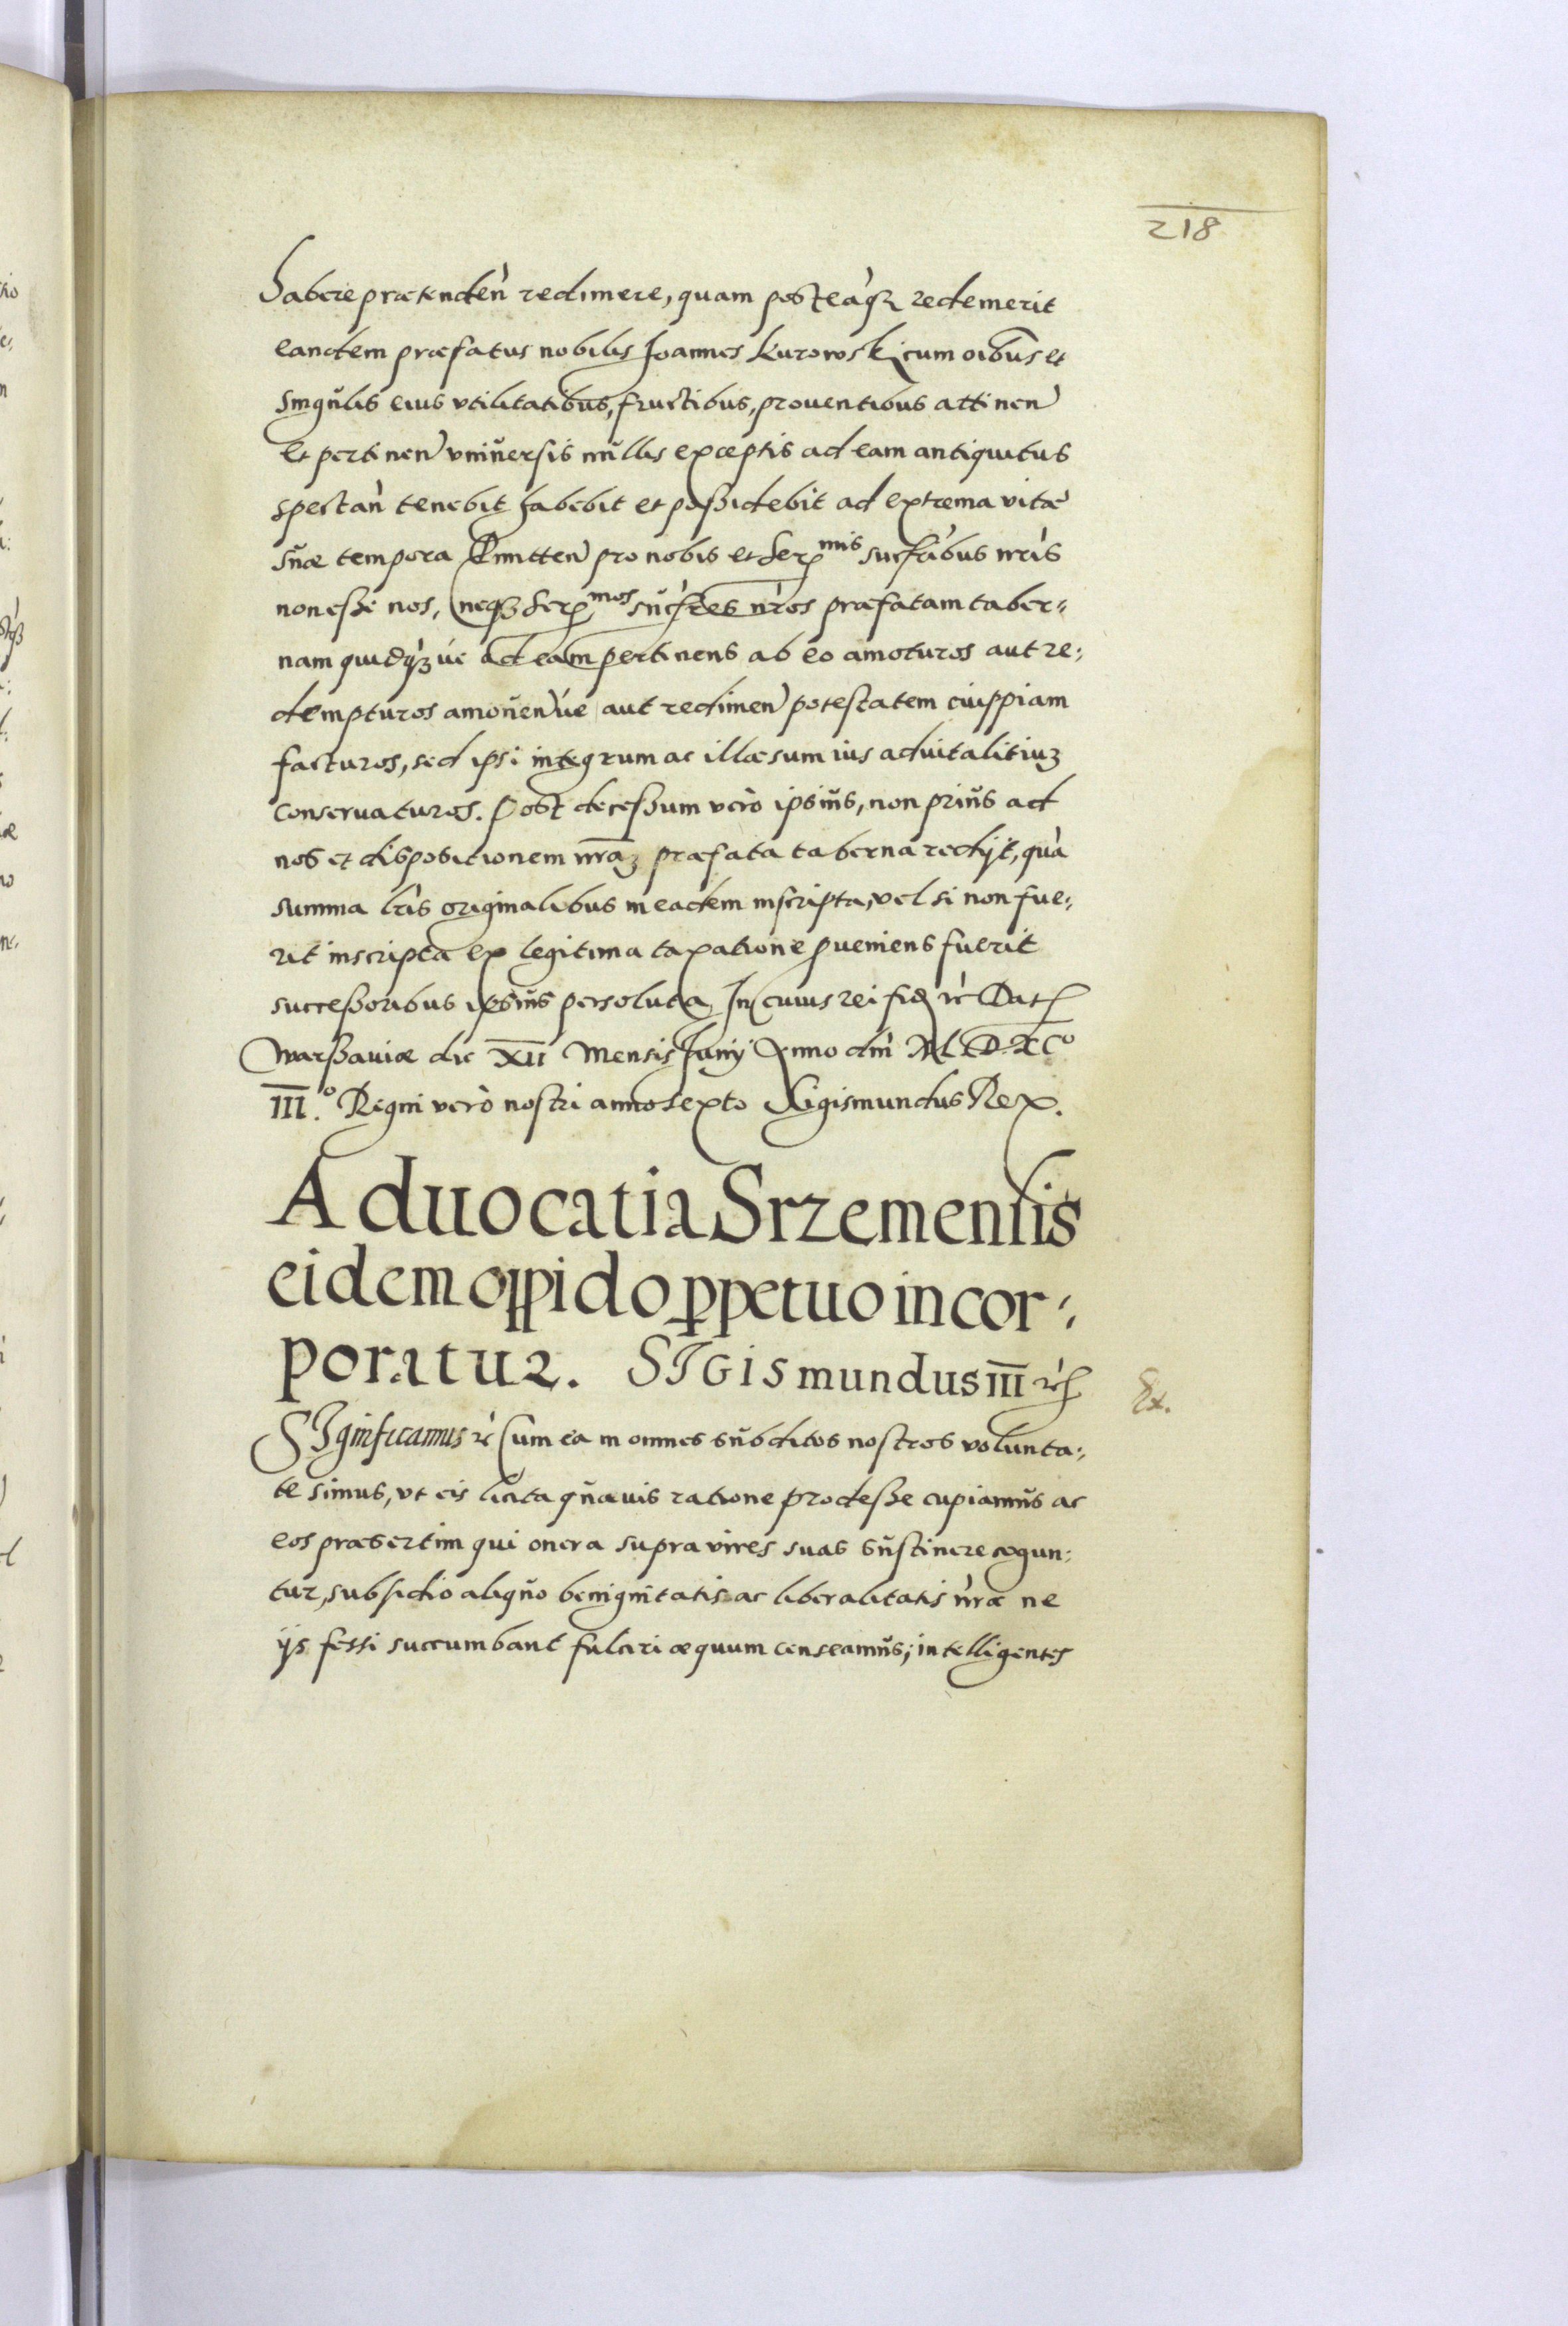 218
habere prætendeñ redimere, quam posteaq̃ redemerit
eandem præfatus nobilis Joannes Kurowski cum oibus et
singulis eius vtilitatibus, fructibus, prouentibus attinen̄
et pertinen̄ vniuersis nullis exceptis ad eam antiquitus
spectan̄ tenebit habebit et possidebit ad extrema vitæ
suæ tempora Promitten̄ pro nobis et Ser^mis sucſribus nr̄is
non esse nos, neqȝ Ser^mos sucſres nr̄os præfatam taber⸗
nam quidq̃ȝue ad eam pertinens ab eo amoturos aut re⸗
dempturos amouen̄ue aut redimen̄ potestatem cuippiam
facturos, sed ipsi integrum ac illæsum ius aduitalitiuȝ
conseruaturos. Post decessum verò ipsius, non prius ad
nos et dispositionem nr̄aȝ præfata taberna redijt, quà
summa lr̄is originalibus in eadem inscripta, vel si non fue⸗
rit inscripta ex legitima taxatione ꝓueniens fuerit
successoribus ipsius persoluta, In cuius rei fid rc̄ Dat
Warssauiæ die XII Mensis Junij Anno dn̄i M.D.XC°
III.° Regni verò nostri anno sexto Sigismundus Rex.
Aduocatia Srzemensis
eidem oppido ꝑpetuo incor⸗
poratur. SIGismundus III rc̄
Ex.
SIgnificamus rc̄ Cum ea in omnes subditos nostros volunta⸗
te simus, vt eis licita quauis ratione prodesse cupiamus ac
eos præsertim qui onera supra vires suas sustinere cogun⸗
tur, subsidio aliquo benignitatis ac liberalitatis nr̄æ ne
ijs fessi succumbant fulciri æquum censeamus; intelligentes